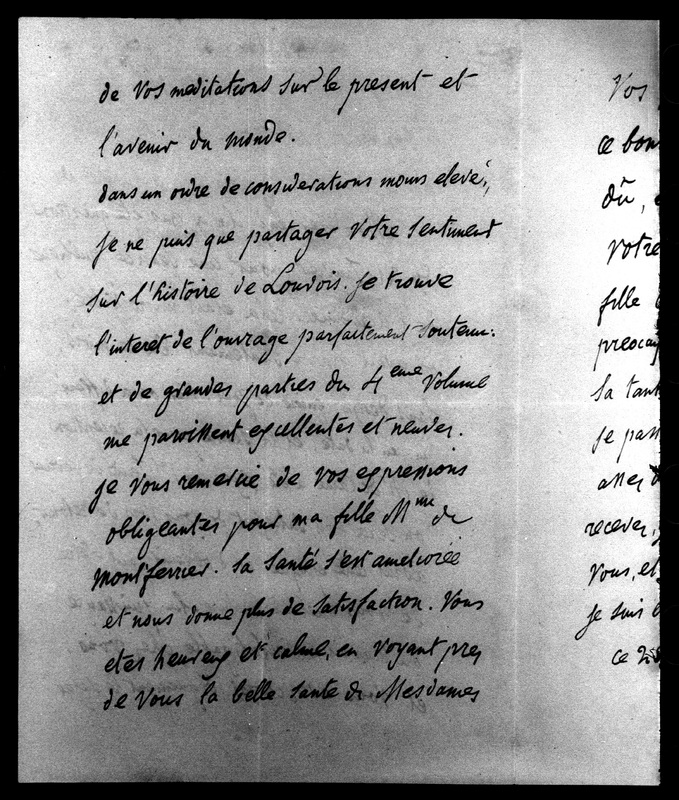 de vos meditations sur le present et
l'avenir du monde.
dans un ordre de considerations moins elevé,
je ne puis que partager votre sentiment
sur l'histoire de Louvois. je trouve
l'interet de l'ouvrage parfaitement soutenu:
et de grandes parties du 4eme volume
me paroissent excellentes et neuves.
je vous remercie de vos expressions
obligeantes pour ma fille Mme de
Montferrier. Sa Santé s'est ameliorée
et nous donne plus de satisfaction. Vous
etes heureux et calme, en voyant pres
de vous la belle santé de Mesdames
Vos
ce bon
dû,
votre
fille
preocup
Sa tant
je pass
assez
recevez,
vous, et
je suis
ce 2